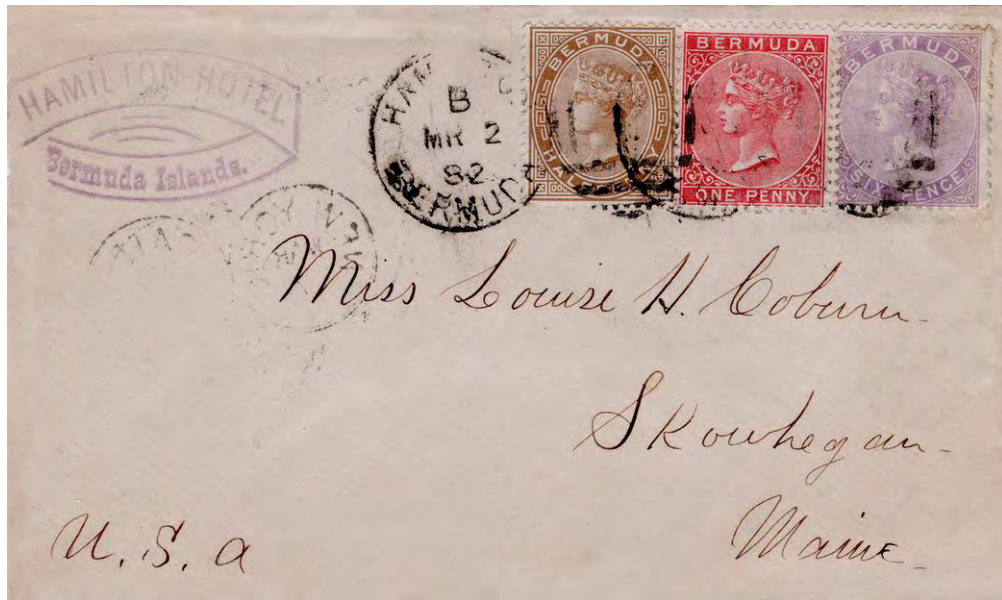 HAMILTON HOTEL
Bermuda Islands.
HAM
B
MR 2
82
BERMUDA
BERMUDA
HA
BERMUDA
ONE PENNY
BERMUDA
SIX PENCE
NEW YORK
Miss Louise H. Coburn
Skowhegan
Maine
U.S.a